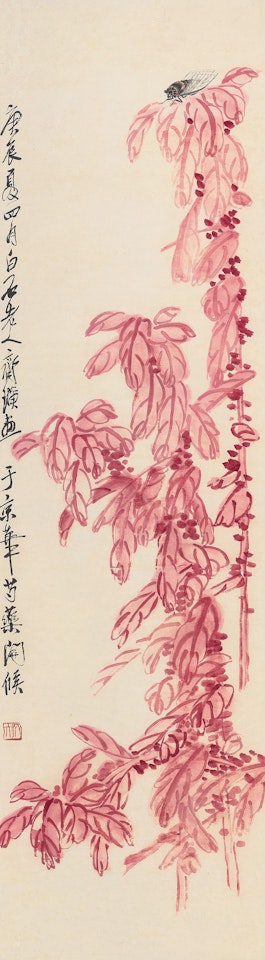 庚辰夏四月白石老人齊璜畫于京華芍藥開候